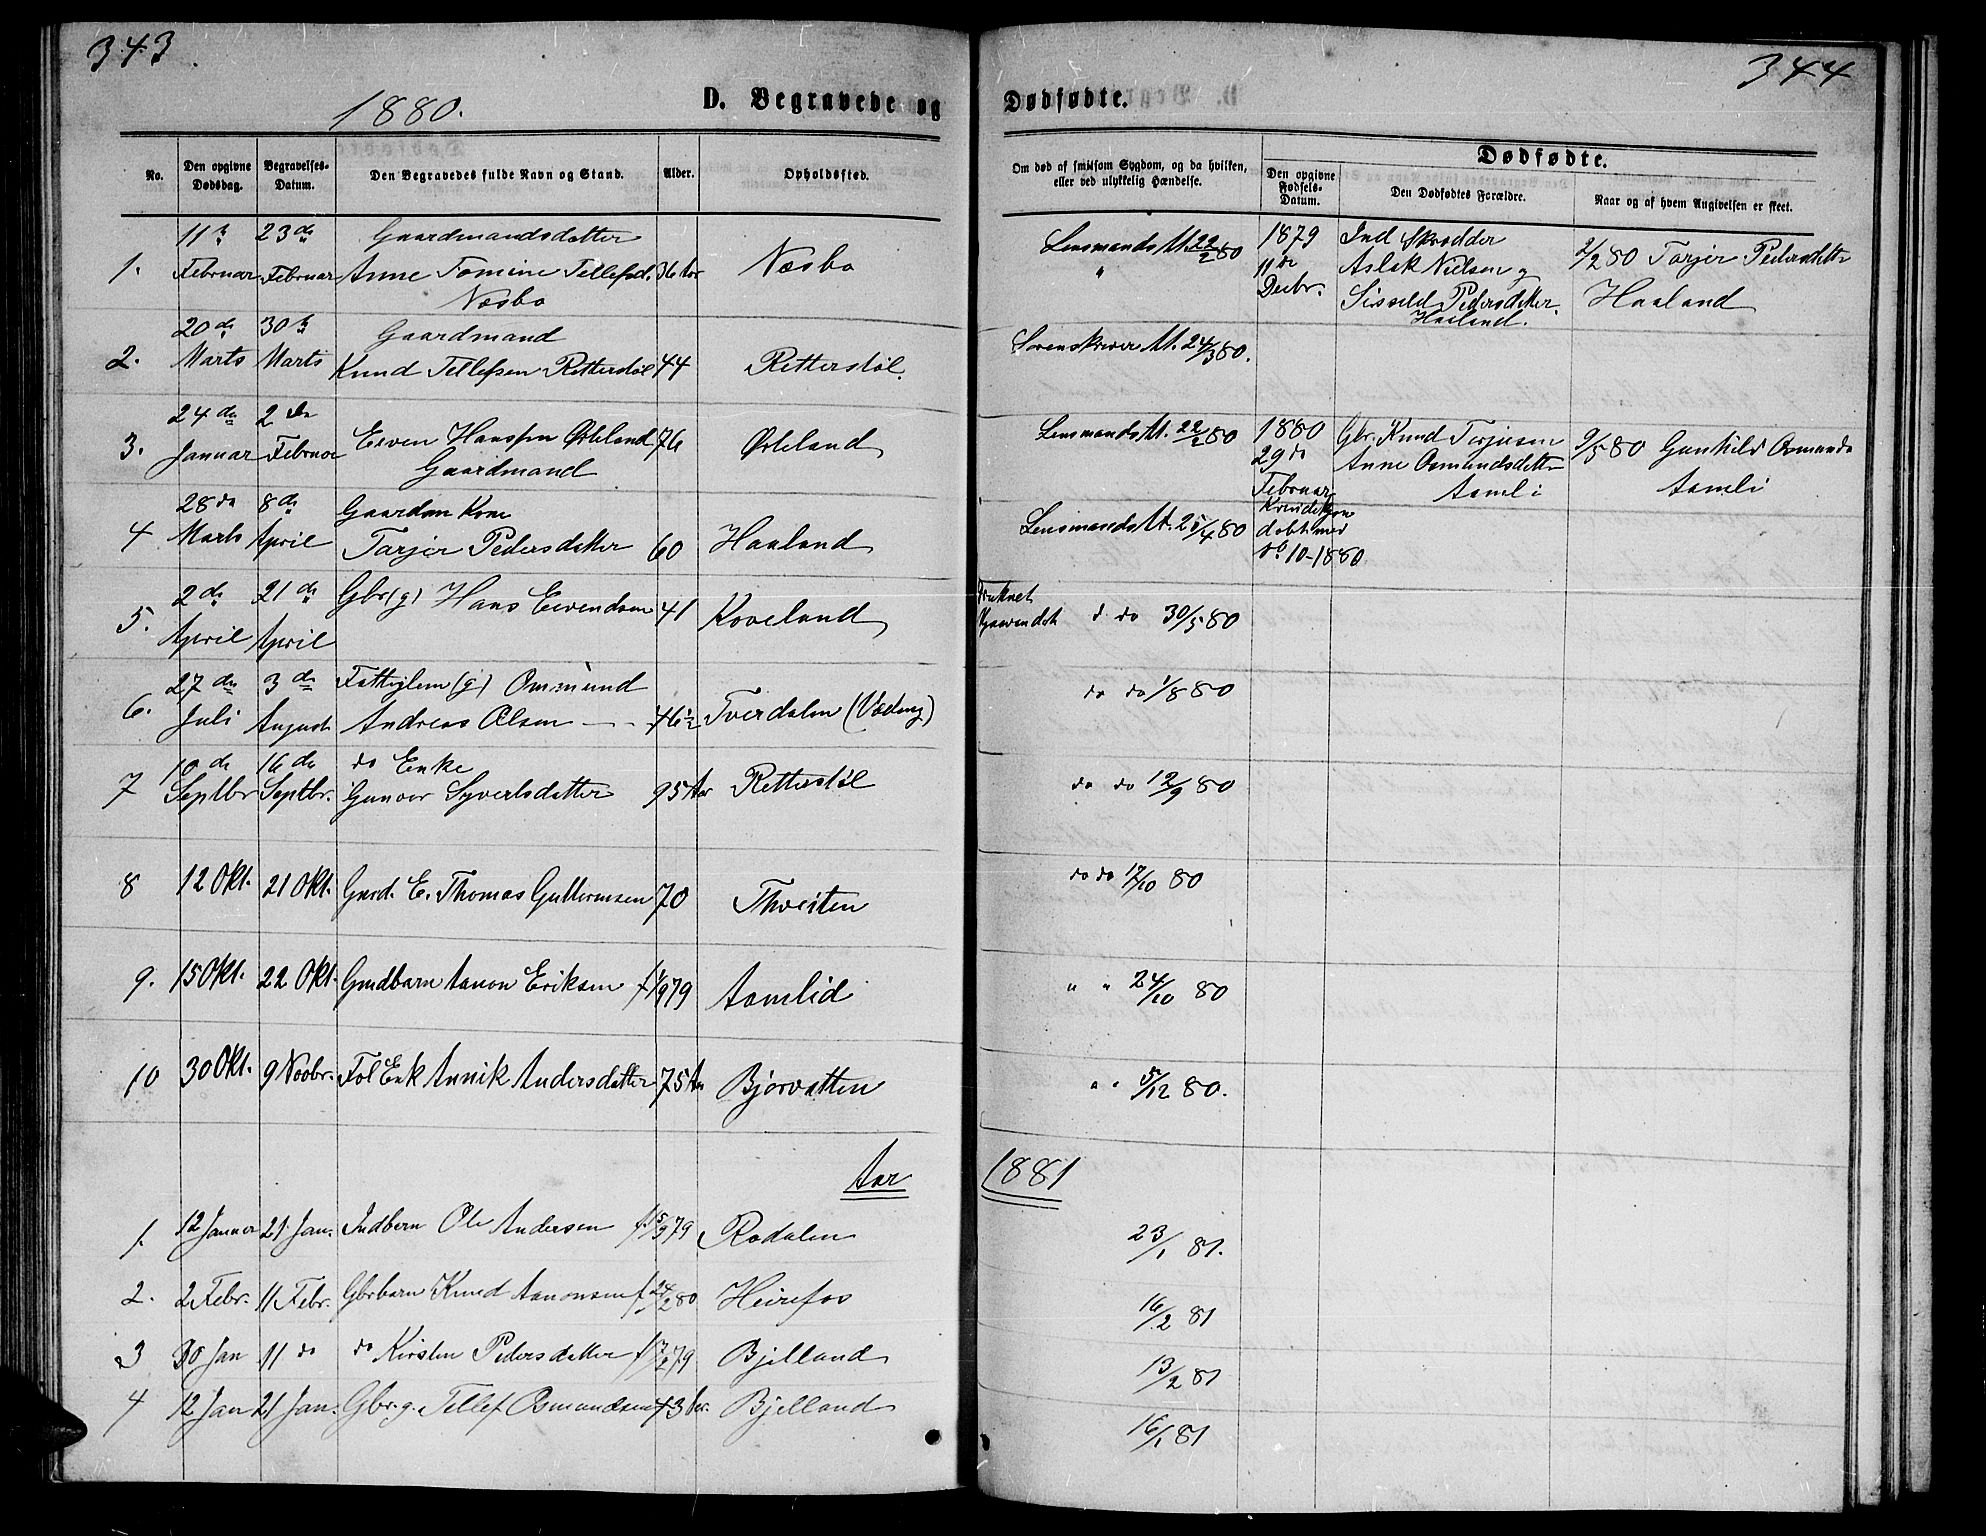 343.
344
1880.
D. Begravede og
Dødfødte.
No.
Den opgivne Dødsdag.
Begravelses-Datum.
Den Begravedes fulde Navn og Stand.
Alder.
Opholdssted.
Om død af smitsom Sygdom, og da hvilken, eller ved ulykkelig Hændelse.
Dødfødte.
Den opgivne Fødsels-Datum.
Den Dødfødtes Forældre.
Naar og af hvem Angivelsen er skeet.
11te 23de Gaardmandsdatter
1. Februar Februar Anne Tomine Tellefsd. 36 Aar Næsbo
Næsbo
Lensmands At. 22/2 80
1879 Ind Skrædder
11te Aslak Nielsen og
Decbr. Sissel Pedersdatter
Haaland.
2/2 80 Tarjer Pedersdatter
Haaland
20de 30te Gaardmand
2. Marts Marts Knud Tellefsen Retterstøl 44 Retterstøl.
Sorenskriver At. 24/3 80.
24de 2den
3. Januar Februar Eeven Hanssen Øxleland 76 Øxleland
Gaardmand
Lensmands At. 22/2 80
1880 Gbr. Knud Terjesen
29de Anne Osmundsdatter
Februar Aamli
2/5 80 Gunhild Osmunds
Aamli
Kvindekjøn
døbt med
No 10-1880
28de 8de Gaardm Kone
4 Marts April Tarjer Pedersdatter 60 Haaland
Lensmands At. 25/4 80
2den 21de Gbr (g) Hans Eevendsen 41 Koveland
5. April April
Druknet
d. do 30/5 80
27de 3de Fattiglem (g) Ommund
6. Juli August Andreas Olsen - - 76 1/2 Tverdalen
do do 1/8 80
10de 16de do Enke
7 Septbr Septbr. Gunvor Syvertsdatter 95 Aar Retterstøl
do do 12/9 80
8 12 Okt. 21 Okt. Gaard. E. Thomas Guttormsen 70 Thveiten
do do 17/10 80
9. 15 Okt. 22 Okt. Gmdbarn Aanon Eriksen f 1/9 79 Aamlid
" " 24/10 80
10 30 Okt. 9 Novbr. Fol Enk Annik Andersdatter 75 Aar Bjorvatten
" " 5/12 80.
Aar 1881
1. 12 Januar 21 Jan. Indbarn Ole Andersen f. 15/9 79 Rodalen
23/1 81.
2. 2 Febr. 11 Febr. Gbrbarn Knud Aanonsen f. 24/2 80 Heirefos
16/2 81
3 30 Jan 11 do do Kirsten Pedersdatter f 17/2 79 Bjelland
13/2 81
4 12 Jan 21 Jan. Gbr. g. Tellef Osmundsen 73 Aar. Bjelland
16/1 81